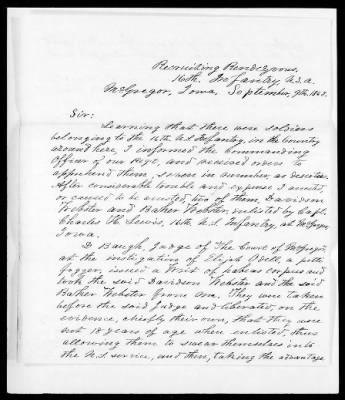 Recruiting Rendezvous,
16th. Infantry, U.S.A.
McGregor, Iowa, September, 9th, 1862.
Sir:
Learning that there were soldiers
belonging to the 16th U.S. Infantry, in the Country
around here, I informed the Commanding
Officer of our Regt, and received orders to
apprehend them, seven in number, as deserters.
After considerable trouble and expense I arrested
or caused to be arrested, two of them, Davidson
Webster and Baker Webster, enlisted by Capt.
Charles H. Lewis, 16th U.S. Infantry, at McGregor,
Iowa.
D. Baugh, Judge of the Court of McGregor,
at the instigation of Elijah Odell, a petti
fogger, issued a writ of habeas corpus and
took the said Davidson Webster and the said
Baker Webster from me. They were taken
before the said Judge and liberated, on the
evidence, chiefly their own, that they were
not 18 years of age when enlisted, thus
allowing them to swear themselves into
the U.S. service, and then, taking the advantage